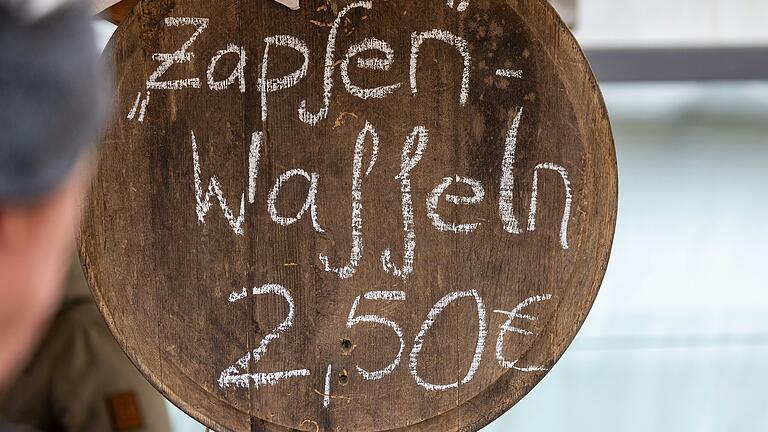 „Zapfen"-
Waffeln
2,50€